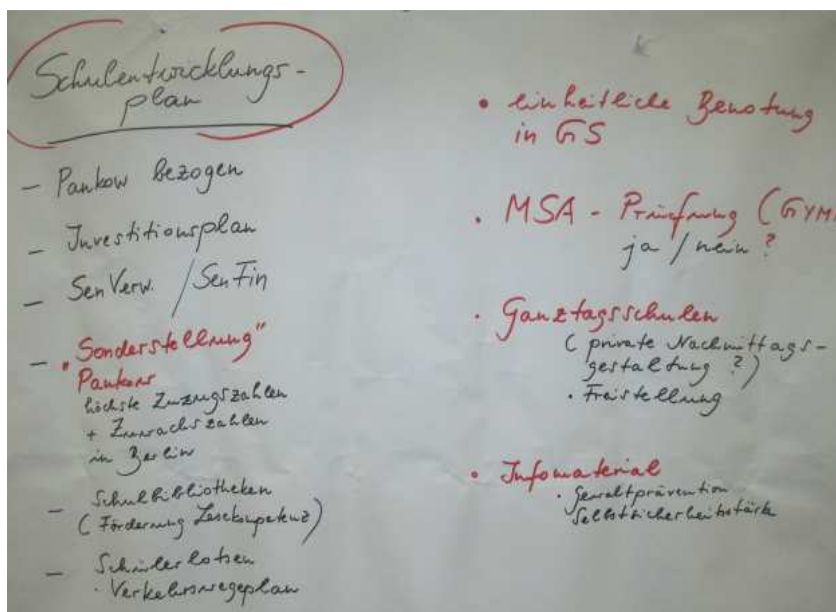 Schulentwicklungs-
plan
- Pankow bezogen
- Investitionsplan
- SenVerw. / SenFin
- "Sonderstellung"
Pankows
höchste Zuzugszahlen
+ Zuwachszahlen
in Berlin
- Schulbibliotheken
(Förderung Lesekompetenz)
- Schülerlotsen
· Verkehrswegeplan
• einheitliche Benotung
in GS
• MSA - Prüfung (GYM
ja / nein ?
• Ganztagsschulen
(private Nachmittags-
gestaltung ?)
• Freistellung
• Infomaterial
• Gewaltprävention
Selbstsicherheitsstärk